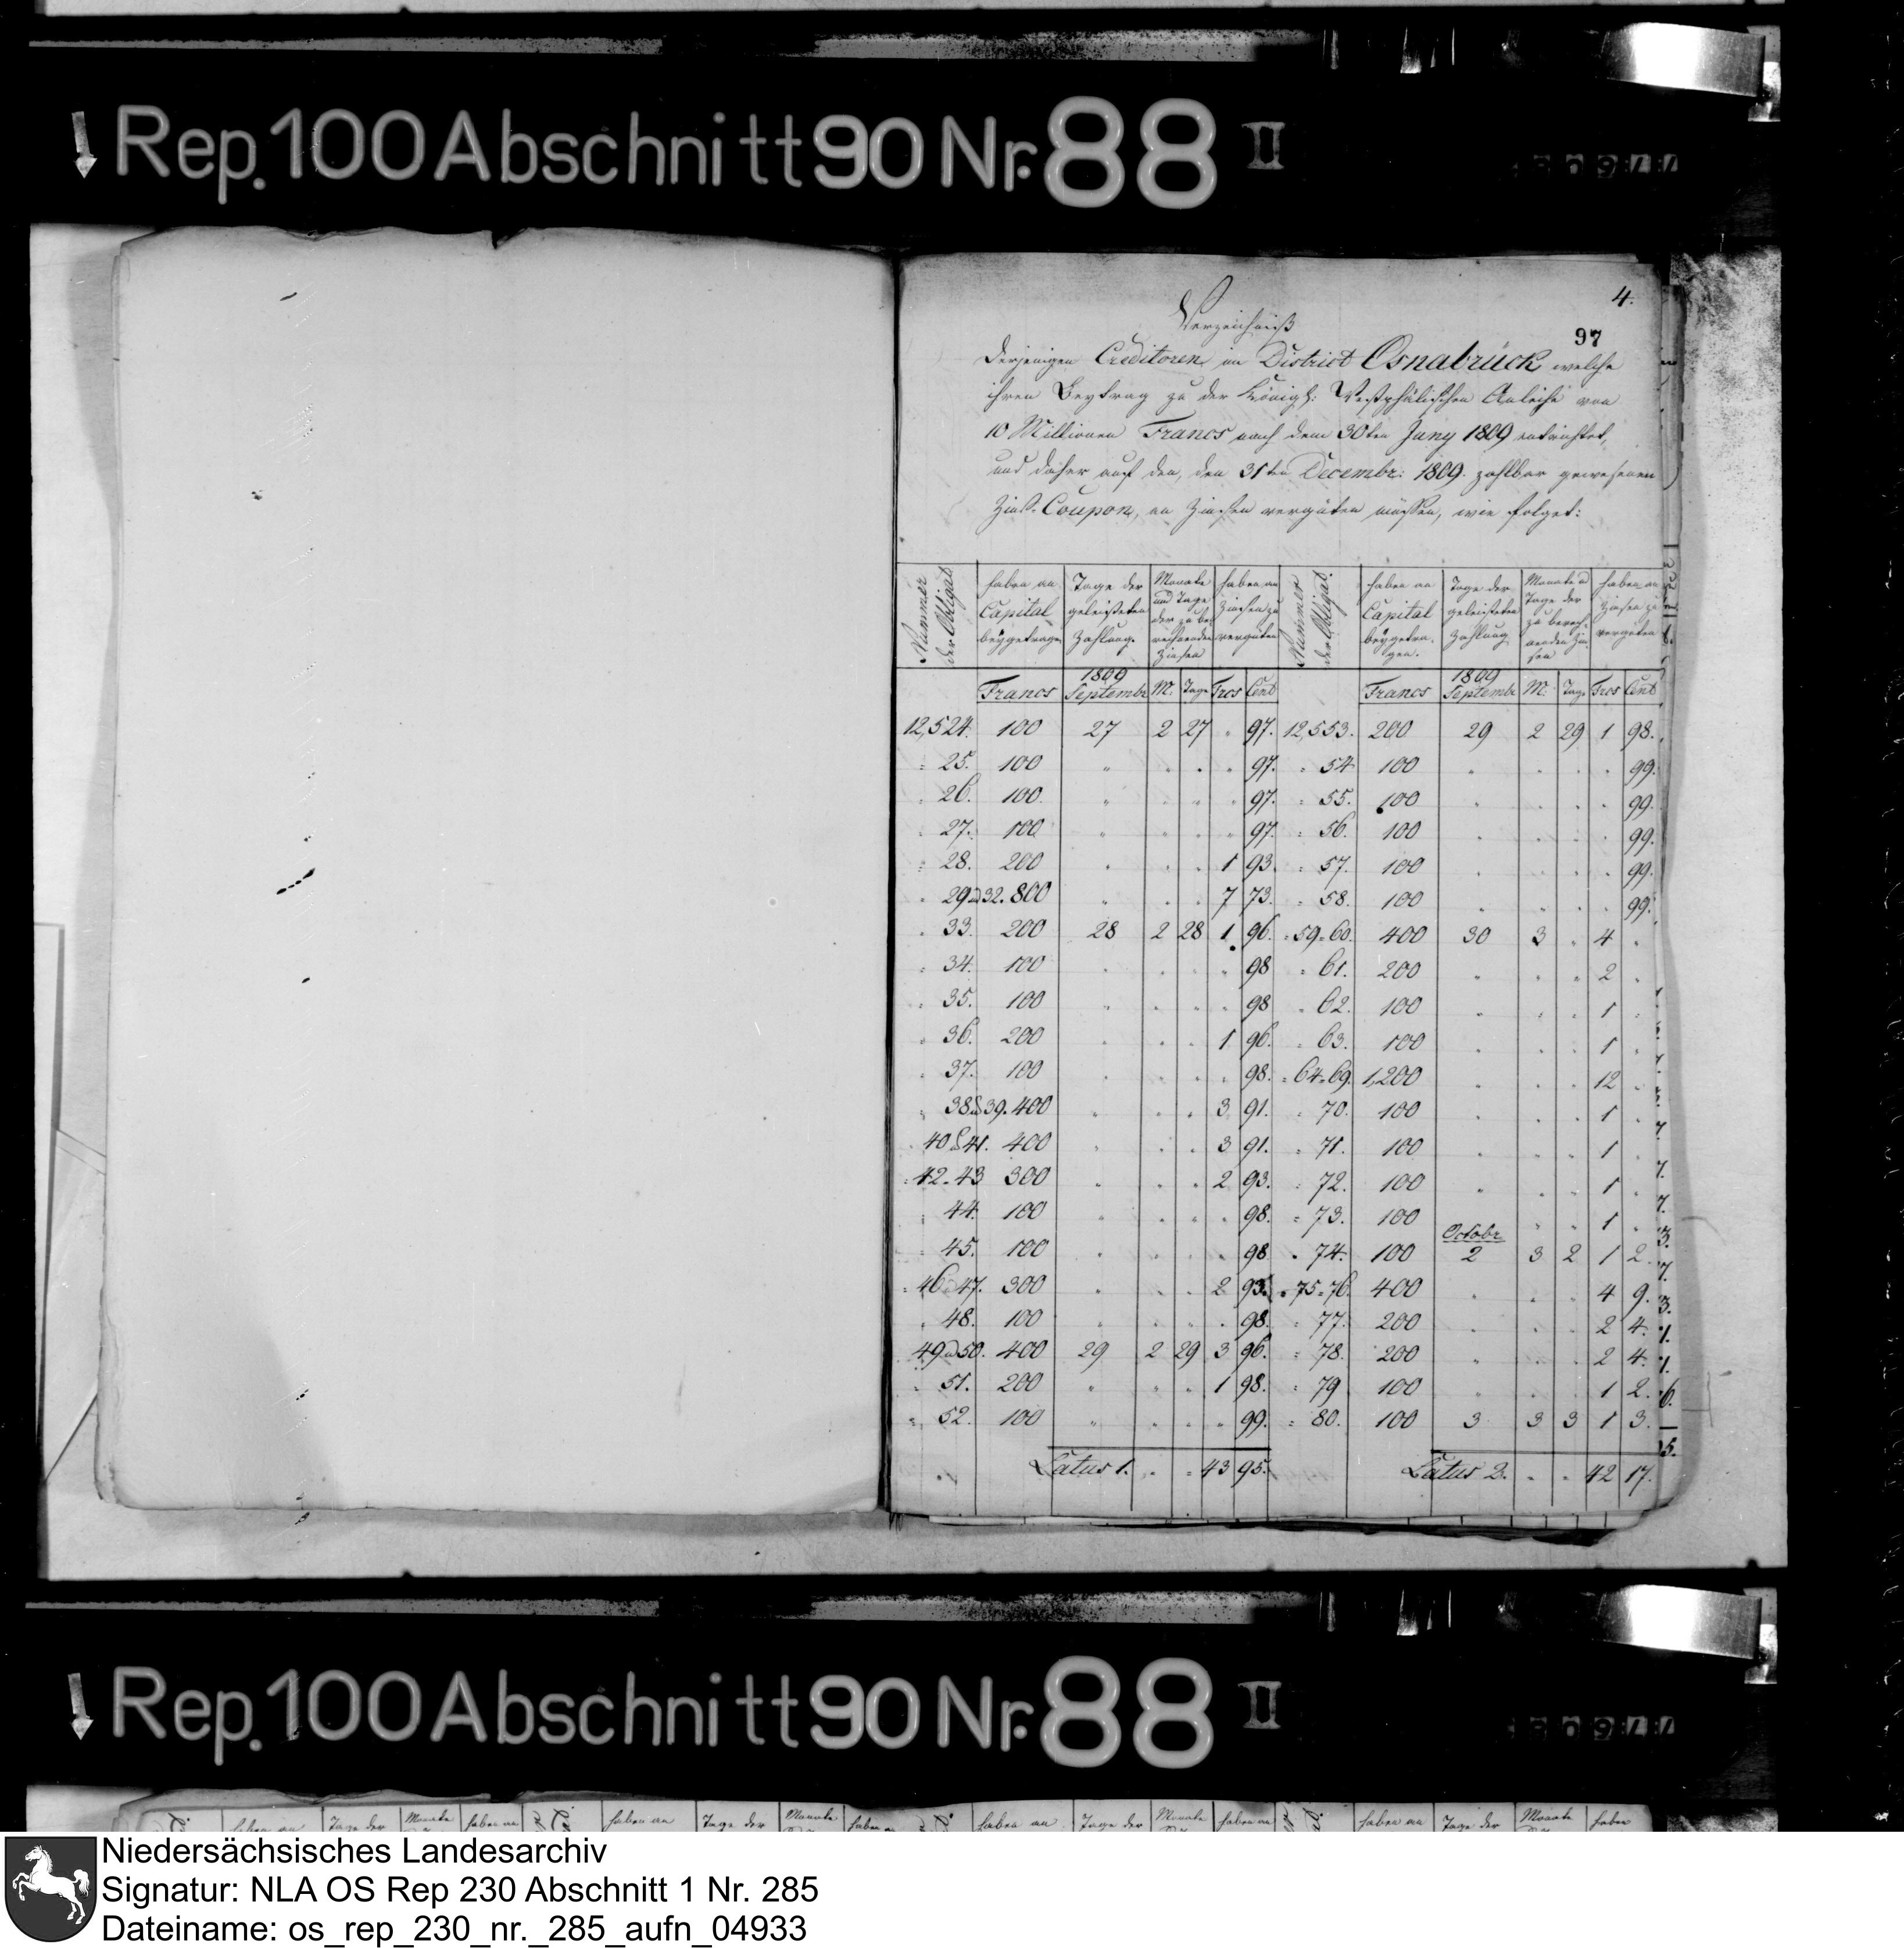 Rep. 100 Abschnitt 90 Nr. 88 II
4.
97
Verzeichniß
derjenigen Creditoren im District Osnabrück welche
ihren Beytrag zu der Königl: Westphälischen Anleihe von
10 Millionen Francs nach dem 30ten Juny 1809 entrichtet,
und daher auf den, den 31ten Decembr: 1809. zahlbar gewesenen
Zins-Coupon, an Zinsen vergüten müssen, wie folget:
Nummer der Obligat. | haben an Capital beygetragen | Tage der geleisteten Zahlung | Monate und Tage der zu berechnenden Zinsen | haben an Zinsen zu vergüten | Nummer der Obligat. | haben an Capital beygetragen. | Tage der geleisteten Zahlung | Monate u Tage der zu berechnenden Zinsen | haben an Zinsen zu vergüten
Francs | 1809 Septembr | M. | Tage | Frcs | Cent | Francs | 1809 Septembr | M. | Tage | Frcs | Cent
12,524. 100 27 2 27 " 97. 12,553. 200 29 2 29 1 98.
" 25. 100 " " " " 97. " 54 100 " " " " 99.
" 26. 100. " " " " 97. " 55. 100 " " " " 99.
" 27. 100 " " " " 97. " 56. 100 " " " " 99.
" 28. 200 " " " 1 93. " 57. 100 " " " " 99.
" 29 a 32. 800 " " " 7 73. " 58. 100 " " " " 99.
" 33. 200 28 2 28 1 96. " 59 = 60. 400 30 3 " 4 "
" 34. 100 " " " " 98 " 61. 200 " " " 2 "
" 35. 100 " " " " 98 " 62. 100 " " " 1 "
" 36. 200 " " " 1 96. " 63. 100 " " " 1 "
" 37. 100 " " " " 98. " 64 = 69. 1,200 " " " 12 "
" 38 & 39. 400 " " " 3 91. " 70. 100 " " " 1 "
" 40 & 41. 400 " " " 3 91. " 71. 100 " " " 1 "
" 42. 43 300 " " " 2 93. " 72. 100 " " " 1 "
" 44. 100 " " " " 98. " 73. 100 " " " 1 "
Octobr
" 45. 100 " " " " 98 " 74. 100 2 3 2 1 2.
" 46 47. 300 " " " 2 93. " 75 = 76. 400 " " " 4 9.
" 48. 100 " " " " 98. " 77. 200 " " " 2 4.
" 49 a 50. 400 29 2 29 3 96. " 78. 200 " " " 2 4.
" 51. 200 " " " 1 98. " 79 100 " " " 1 2.
" 52. 100 " " " " 99. " 80. 100 3 3 3 1 3.
Latus 1. " " 43 95. Latus 2. " " 42 17.
Rep. 100 Abschnitt 90 Nr. 88 II
haben an Tage der Monate haben an haben an Tage der Monate haben an haben an Tage der Monate haben an haben an Tage der Monate haben
Niedersächsisches Landesarchiv
Signatur: NLA OS Rep 230 Abschnitt 1 Nr. 285
Dateiname: os_rep_230_nr._285_aufn_04933